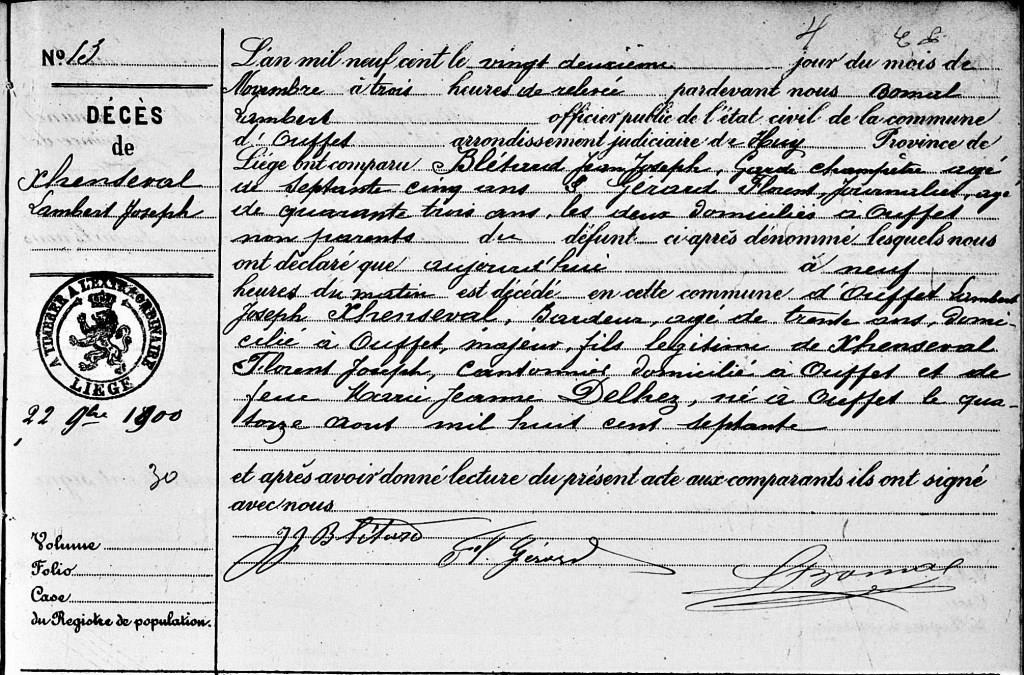 4
Nº 13
DÉCÈS
de
Xhenseval
Lambert Joseph
A TIMBRER A L'EXTRAORDINAIRE
LIÈGE
22 9bre 1900
30
Volume
Folio
Case
du Registre de population.
L'an mil neuf cent le vingt deuxième jour du mois de
Novembre à trois heures de relevée pardevant nous Bomal
Lambert officier public de l'état civil de la commune
d'Ouffet arrondissement judiciaire de Huy Province de
Liége ont comparu Blétard Jean Joseph, Garde champêtre agé
de septante cinq ans & Gérard Florent, Journalier, agé
de quarante trois ans, les deux domiciliés à Ouffet
non parents du défunt ci après dénommé lesquels nous
ont déclaré que aujourd'hui à neuf
heures du matin est décédé en cette commune d'Ouffet Lambert
Joseph Xhenseval, Bardeur, agé de trente ans, domi-
cilié à Ouffet, majeur, fils légitime de Xhenseval
Florent Joseph, Cantonnier domicilié à Ouffet et de
feue Marie Jeanne Delhez, né à Ouffet le qua-
torze aout mil huit cent septante
et après avoir donné lecture du présent acte aux comparants ils ont signé
avec nous
JJ Blétard Fl Gérard LBomal